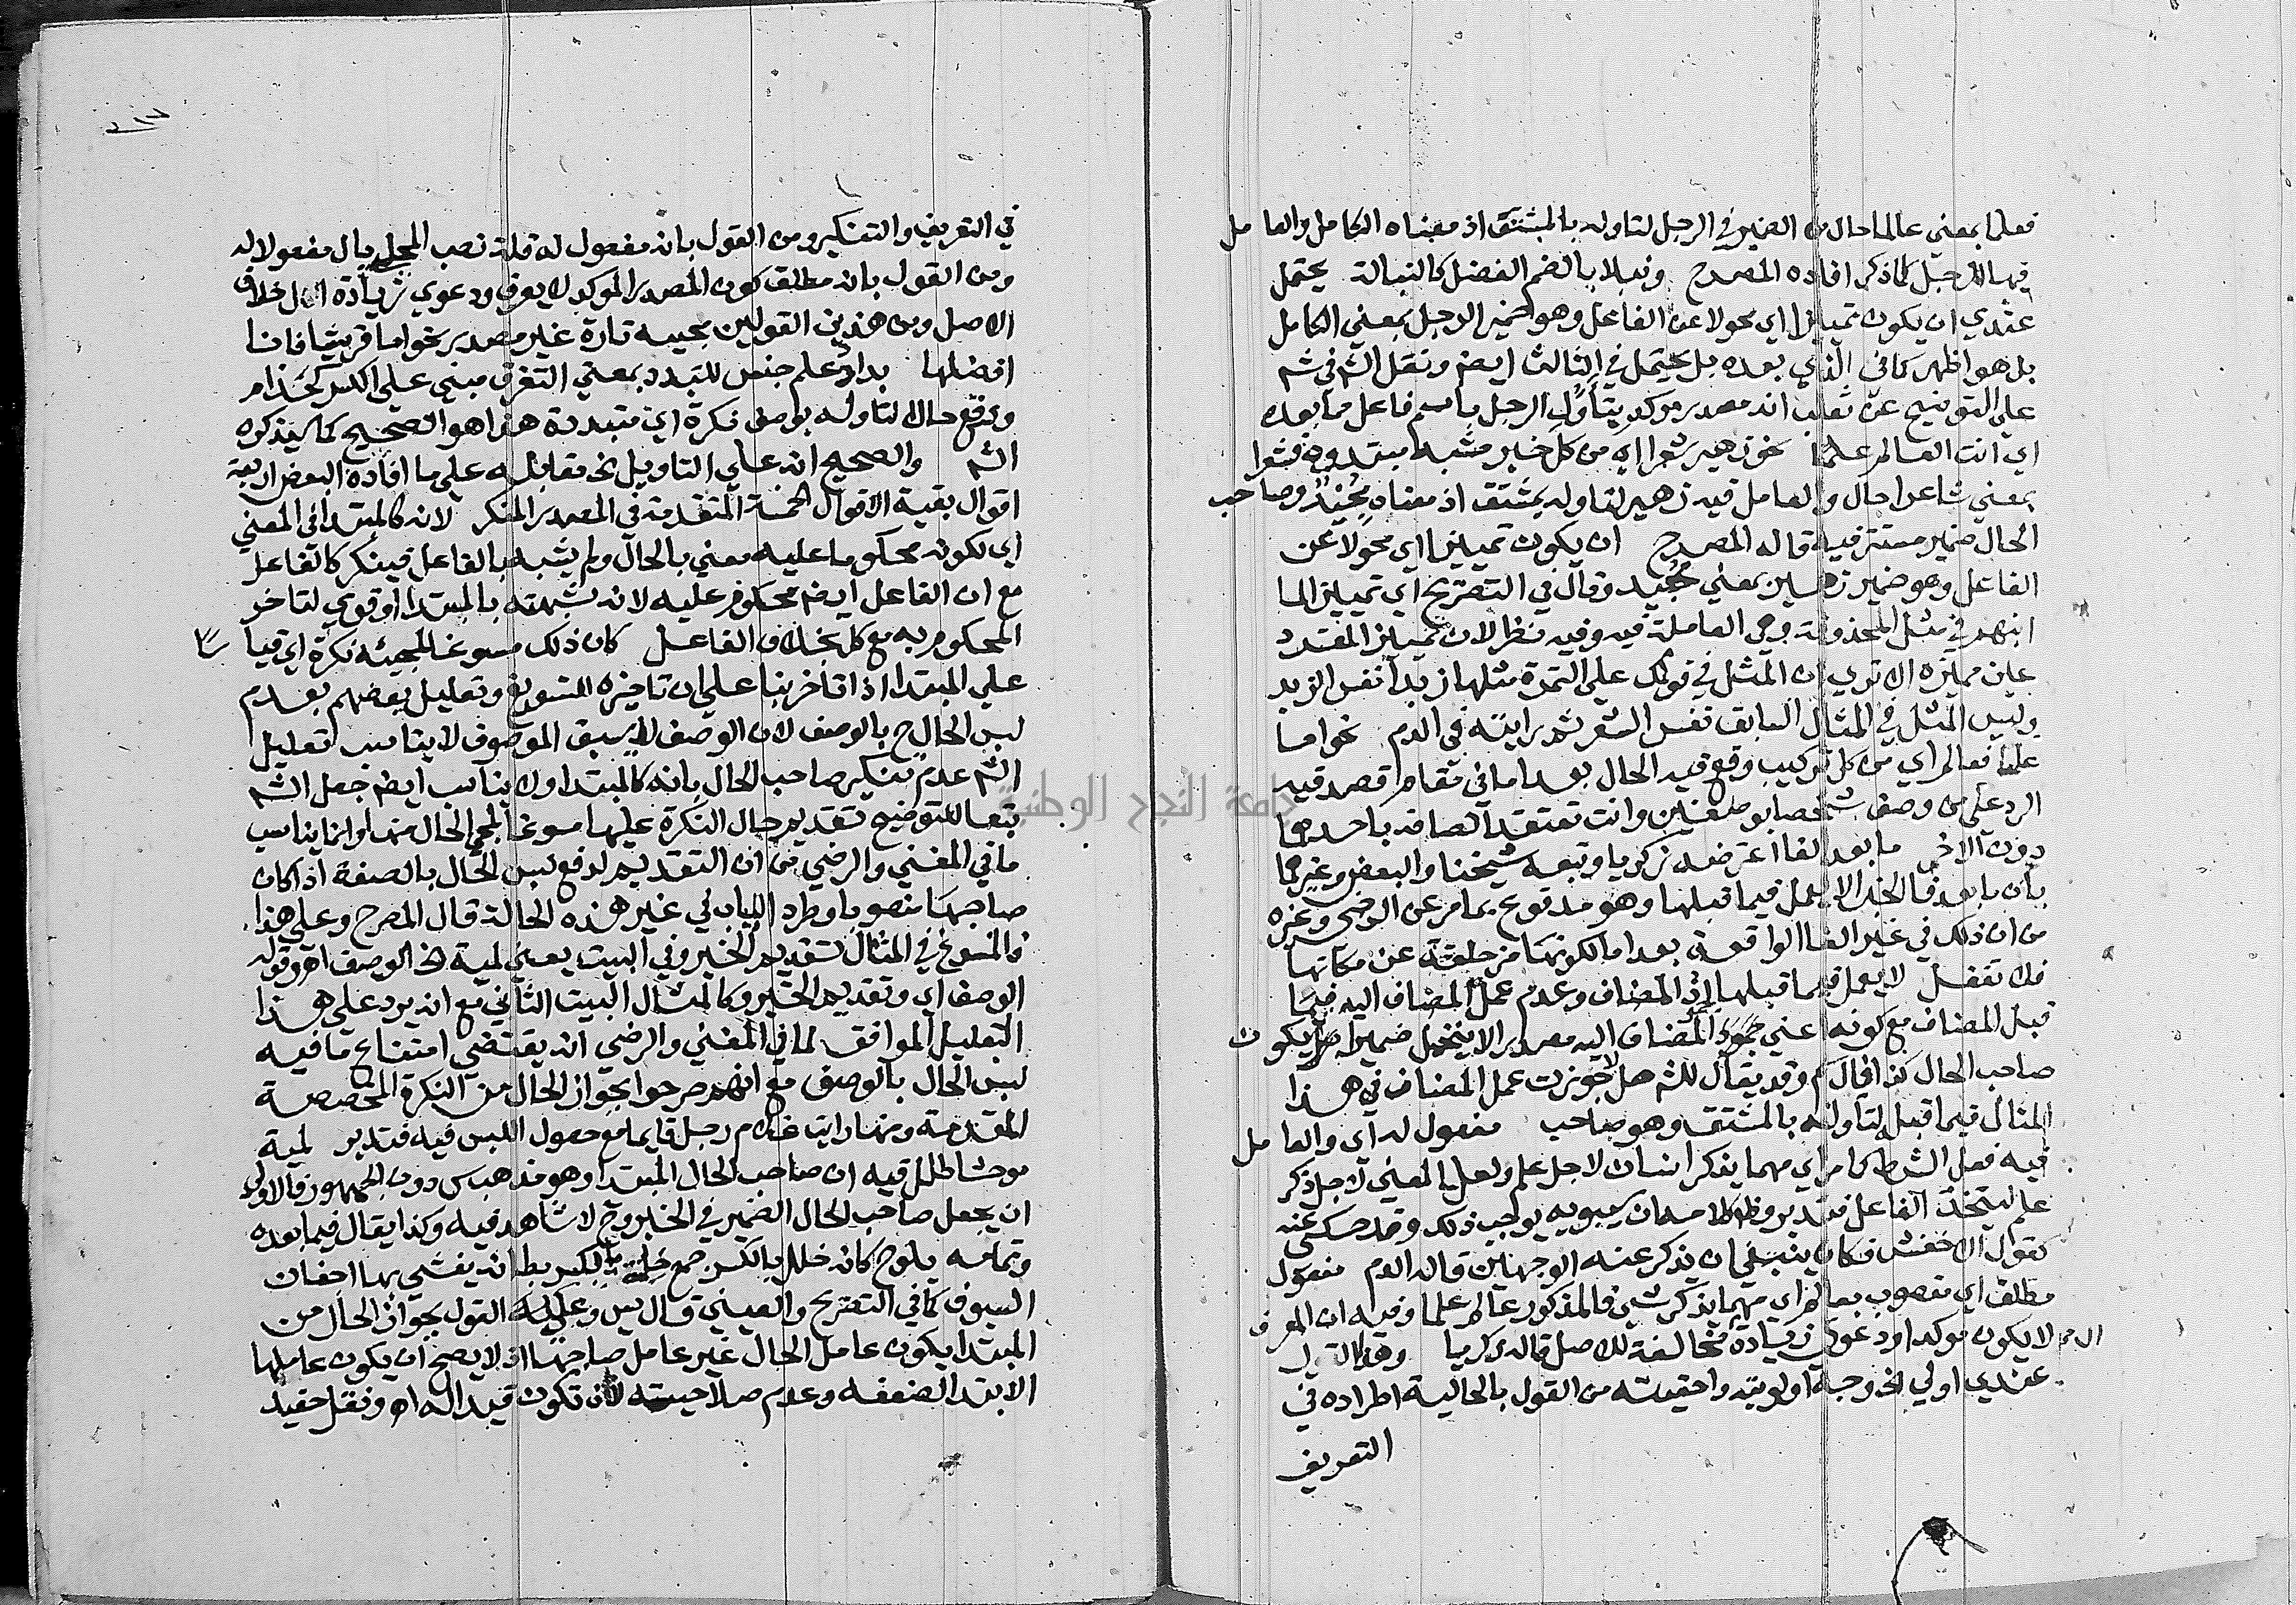 فعلما بمعني عالما حال من الضمير في الرجل لتاوله بالمشتق اذ معناه الكامل والعامل
فيها الرجل كما ذكر افاده المصرح ونبلا بالضم الفضل كالنبالة يحتمل
عندي ان يكون تمييزا اي محولا عن الفاعل وهو ضمير الرجل بمعني الكامل
بل هو اظهر كما في الذي بعده بل يحتمل في الثالث ايضا ونقل الشم في شم
علي التوضيح عن ثعلب انه مصدر موكد بتأول الرجل باسم فاعل مما بعده
اي انت العالم علما نحو زهير شعرا اي من كل خبر مشبه به مبتدوه فشعرا
بمعني شاعرا حال والعامل فيه زهير لتاوله بمشتق اذ معناه مجيد وصاحب
الحال ضمير مستتر فيه قاله المصرح ان يكون تمييزا اي محولا عن
الفاعل وهو ضمير زهير بمعني مجيد وقال في التصريح اي تمييز لما
انبهم في مثل المحذوفة وهي العاملة فيه وفيه نظر لان تمييز المفرد
عين مميزه الا تري ان المثل في قولك علي التمرة مثلها زبدا نفس الزبد
وليس المثل في المثال السابق نفس الشعر ثم رايته في الدم نحو اما
علما فعالم اي من كل تركيب وقع فيه الحال بعد اما في مقام قصد فيه
الرد علي من وصف شخصا بوصفين وانت تعتقد اتصافه باحدهما
دون الاخر ما بعد الفا اعترضه زكريا وتبعه شيخنا والبعض وغيرهما
بان ما بعد فا الجزا لا يعمل فيما قبلها وهو مدفوع بما مر عن الرضي وغيره
من ان ذلك في غير الفا الواقعة بعد اما لكونها مزحلقة عن مكانها
فلا تغفل لا يعمل فيما قبلها اذ المضاف وعدم عمل المضاف اليه فيما
قبل المضاف مع كونه اعني المضاف اليه مصدر الا يتحمل ضميرا يكون
صاحب الحال كذا قال سم وقد يقال للشم هلا جوزت عمل المضاف في هذا
المثال فيما قبل لتاوله بالمشتق وهو صاحب مفعول له اي والعامل
فيه فعل الشرط كما مر اي مهما يذكر انسان لاجل علم ولعل المعني لاجل ذكر
علم ليتحد الفاعل فتدبر وظاهر كلامه ان سيبويه يوجب ذلك وقد حكي عنه
كقول الاخفش فكان ينبغي ان يذكر عنه الوجهين قاله الدم مفعول
مطلق اي منصوب بعالم اي مهما يذكر شي فالمذكور عالم علما وفيه ان المعرف
لا يكون موكدا ودعوي زيادة ال مخالفة للاصل قاله زكريا وهذا القول
عندي اولي الخ وجه اولويته واحقيته من القول بالحالية اطراده في
التعريف
في التعريف والتنكير ومن القول بانه مفعول له قلة نصب المحلي بال مفعولا له
ومن القول بانه مطلق كون المصدر الموكد لا يعرف ودعوي زيادة ال خلاف
الاصل ومن هذين القولين مجيه تارة غير مصدر نحو اما قريشا فانا
افضلها بداد علم جنس للتبدد بمعني التفرق مبني علي الكسر كحذام
ووقع حالا لتاوله بوصف نكرة اي متبددة هذا هو الصحيح كما يذكره
الشم والصحيح انه علي التاويل الخ مقابله علي ما افاده البعض اربعة
اقوال بقية الاقوال الخمسة المتقدمة في المصدر المنكر لانه كالمبتدا في المعني
اي لكونه محكوما عليه معني بالحال ولم يشبه بالفاعل فينكر كالفاعل
مع ان الفاعل ايضا محكوم عليه لانه شبهته بالمبتدا اوقوي لتاخر
المحكوم به مع كل بخلاف الفاعل كان ذلك مسوغا لمجيئه نكرة اي قياسا
علي المبتدا اذا تاخر بنا علي ان تاخيره للتسويغ وتعليل بعضهم بعدم
لبس الحال ح بالوصف لان الوصف لا يسبق الموصوف لا يناسب تعليل
الشم عدم تنكير صاحب الحال بانه كالمبتدا ولا يناسب ايضا جعل الشم
تبعا للتوضيح تقديم حال النكرة عليها مسوغا لمجي الحال منها وانما يناسب
ما في المغني والرضي من ان التقديم لدفع لبس الحال بالصفة اذا كان
صاحبها منصوبا وطرد الباب في غير هذه الحالة قال المصرح وعلي هذا
فالمسوغ في المثال تقديم الخبر وفي البيت يعني لمية الخ الوصف اه وقوله
الوصف اي وتقديم الخبر وكالمثال البيت الثاني مع انه يرد علي هذا
التعليل الموافق لما في المغني والرضي انه يقتضي امتناع ما فيه
لبس الحال بالوصف مع انهم صرحوا بجواز الحال من النكرة المخصصة
المتقدمة ومنها رايت غلام رجل قايما مع حصول اللبس فيه فتدبر لمية
موحشا طلل فيه ان صاحب الحال المبتدا وهو مذهب س دون الجمهور فالاولي
ان يجعل صاحب الحال الضمير في الخبر وح لا شاهد فيه وكذا يقال فيما بعده
وتمامه يلوح كانه خلل بالكسر جمع خلة بالكسر بطانة يغشي بها اجفان
السيوف كما في التصريح والعيني قال يس وعلي القول بجواز الحال من
المبتدا يكون عامل الحال غير عامل صاحبها اذ لا يصح ان يكون عاملها
الابتدا لضعفه وعدم صلاحيته لان تكون قيدا له اه ونقل حفيد
جامعة النجاح الوطنية